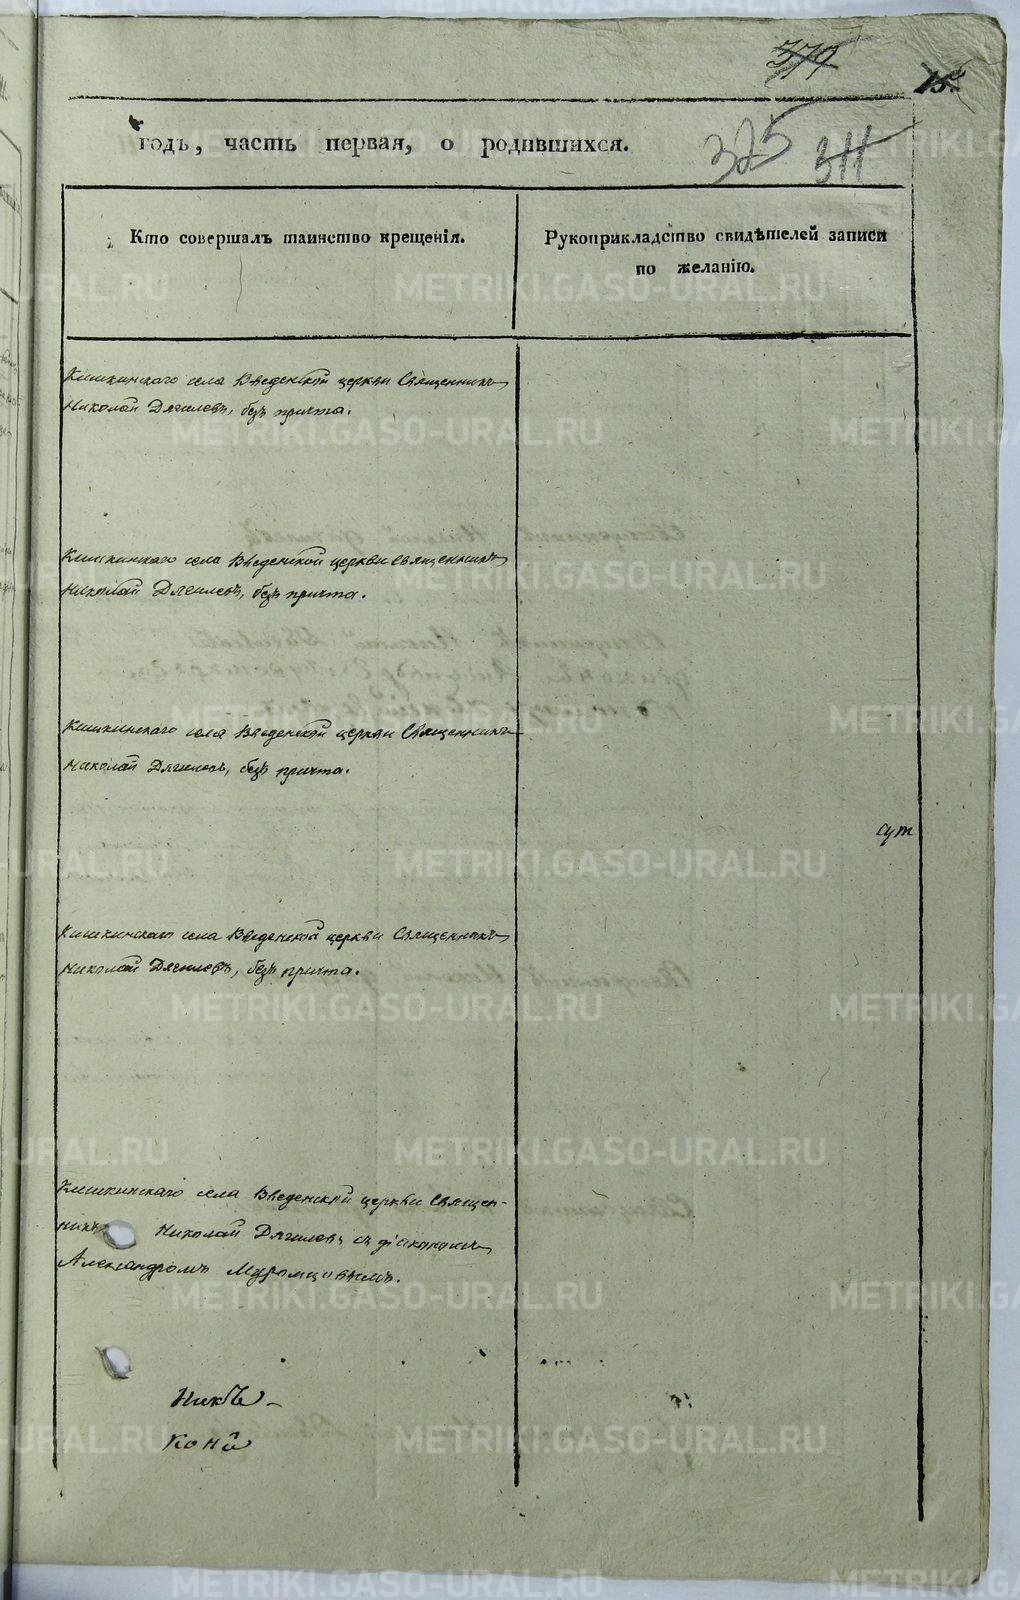 379
15
годъ, часть первая, о родившихся.
325 311
Кто совершалъ таинство крещенія.
Рукоприкладство свидѣтелей записи
по желанію.
Кишкинскаго села Введенской церкви Священникъ
Николай Дягилевъ, безъ причта.
Кишкинскаго села Введенской церкви Священникъ
Николай Дягилевъ, безъ причта.
Кишкинскаго села Введенской церкви Священникъ
Николай Дягилевъ, безъ причта.
сут
Кишкинскаго села Введенской церкви Священникъ
Николай Дягилевъ, безъ причта.
Кишкинскаго села Введенской церкви Священ-
никъ Николай Дягилевъ съ діакономъ
Александромъ Муромцовымъ.
METRIKI.GASO-URAL.RU